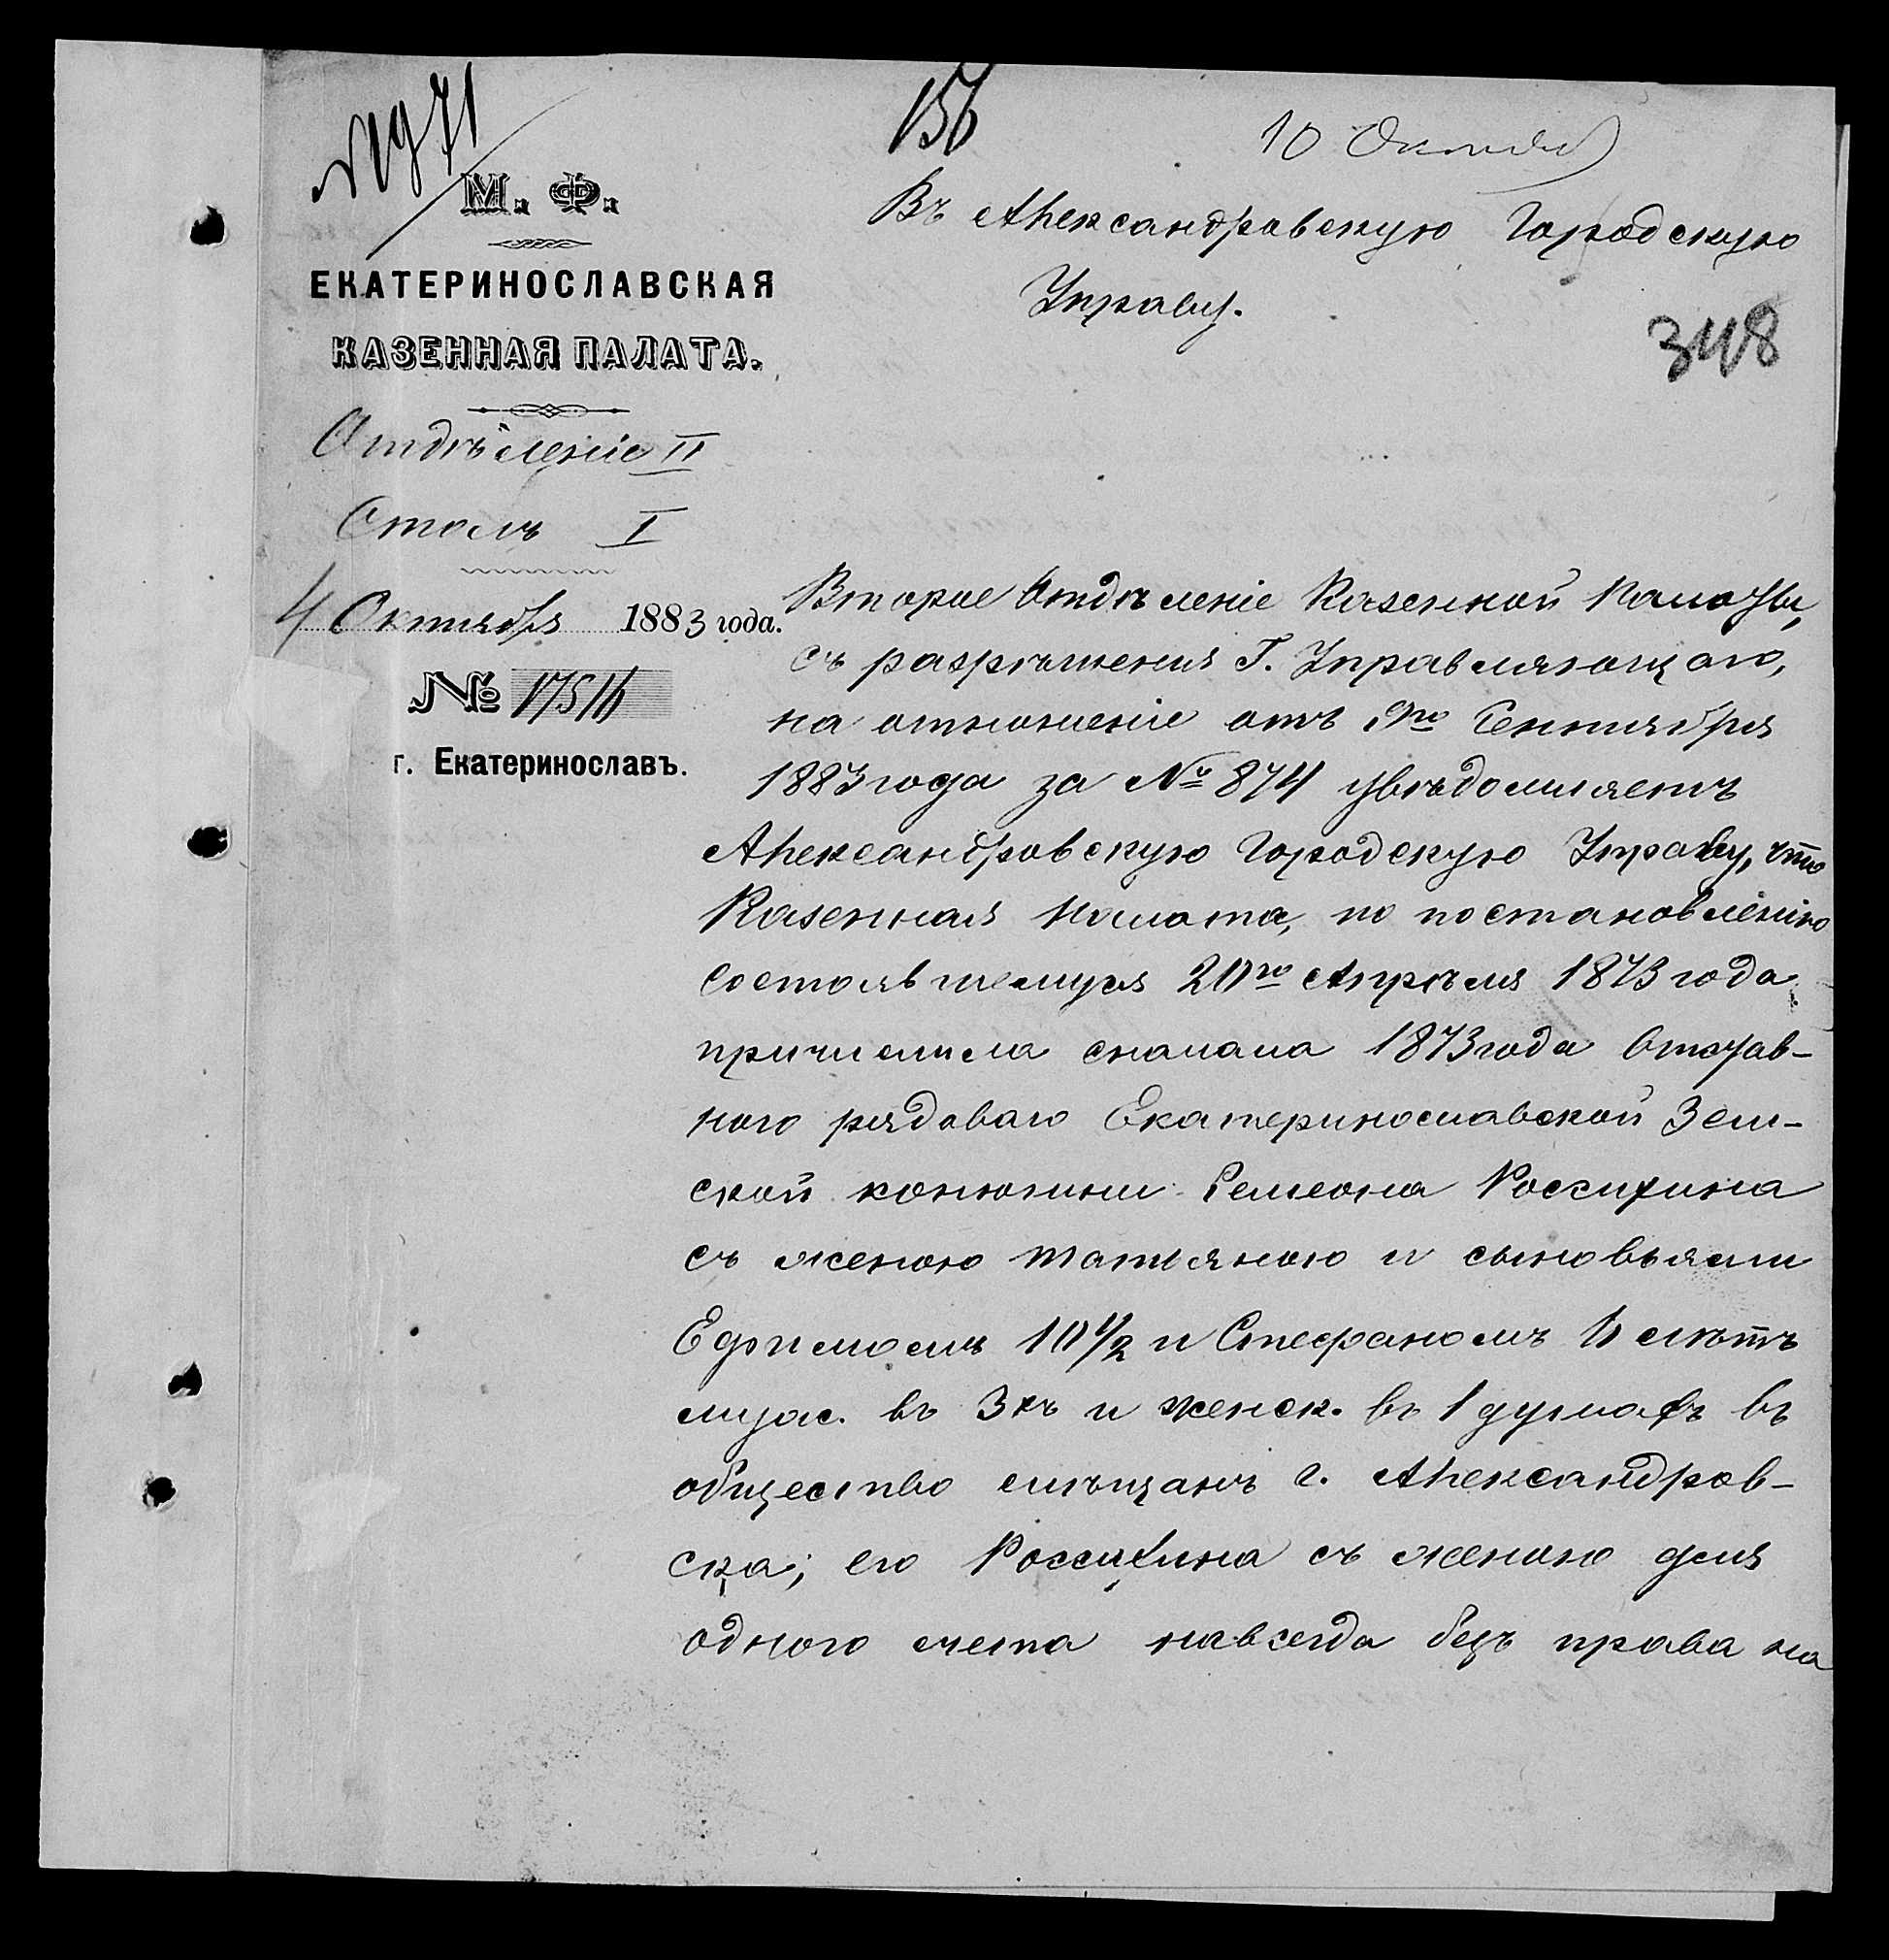 № 971
156
10 Октября
М. Ф.
ЕКАТЕРИНОСЛАВСКАЯ
КАЗЕННАЯ ПАЛАТА.
Отдѣленіе II
Столъ I
4 Октября 1883 года.
№ 17516
г. Екатеринославъ.
Въ Александровскую Городскую
Управу.
348
Второе Отдѣленіе Казенной Палаты,
съ разрѣшенія Г. Управляющаго,
на отношеніе отъ 9го Сентября
1883 года за № 874 увѣдомляетъ
Александровскую Городскую Управу, что
Казенная Палата, по постановленію
состоявшемуся 20го Апрѣля 1873 года
причислила сначала 1873 года Отстав-
ного рядоваго Екатеринославской Зем-
ской конюшни Семеона Россихина
съ женою Татьяною и сыновьями
Ефимомъ 10 1/2 и Стефаномъ лѣтъ
муж. въ 3хъ и женск. въ 1 душахъ въ
общество мѣщанъ г. Александров-
ска; его Россихина съ женою для
одного счета навсегда безъ права на